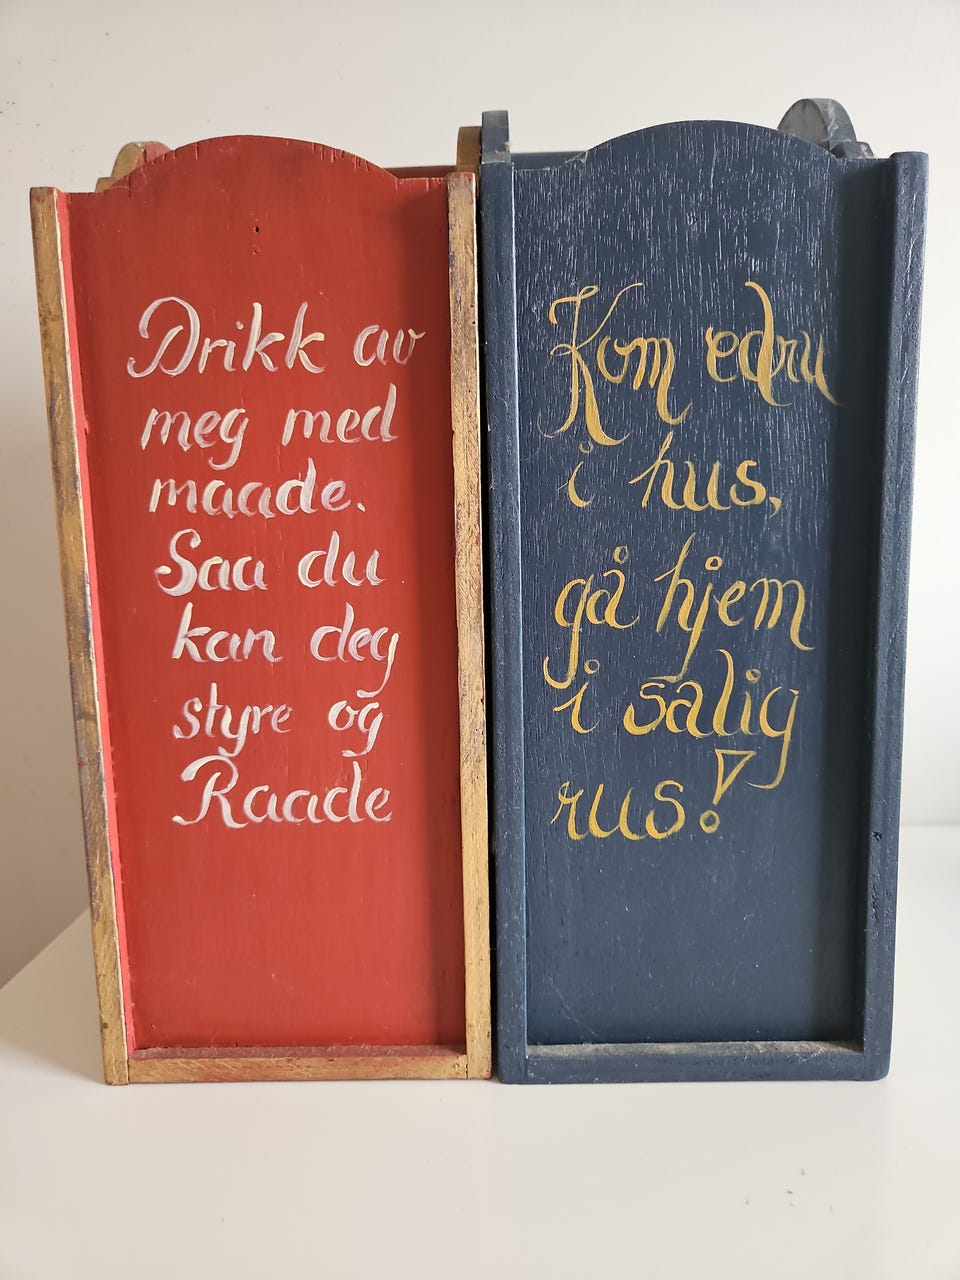 Drikk av
meg med
maade.
Saa du
kan deg
styre og
Raade
Kom edru
i hus,
gå hjem
i salig
rus!